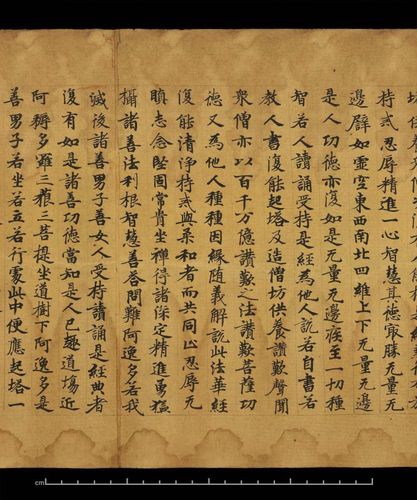 持戒忍辱精進一心智慧其德㝡勝无量无
邊譬如虛空東西南北四維上下无量无邊
是人功德亦復如是无量无邊疾至一切種
智若人讀誦受持是經為他人說若自書若
教人書復能起塔及造僧坊供養讚歎聲聞
衆僧亦以百千万億讚歎之法讚歎菩薩功
德又為他人種種因緣隨義解說此法華經
復能清淨持戒與柔和者而共同止忍辱无
瞋志念堅固常貴坐禪得諸深定精進勇猛
攝諸善法利根智慧善荅問難阿逸多若我
滅後諸善男子善女人受持讀誦是經典者
復有如是諸善功德當知是人已趣道場近
阿耨多羅三藐三菩提坐道樹下阿逸多是
善男子若坐若立若行處此中便應起塔一
cm